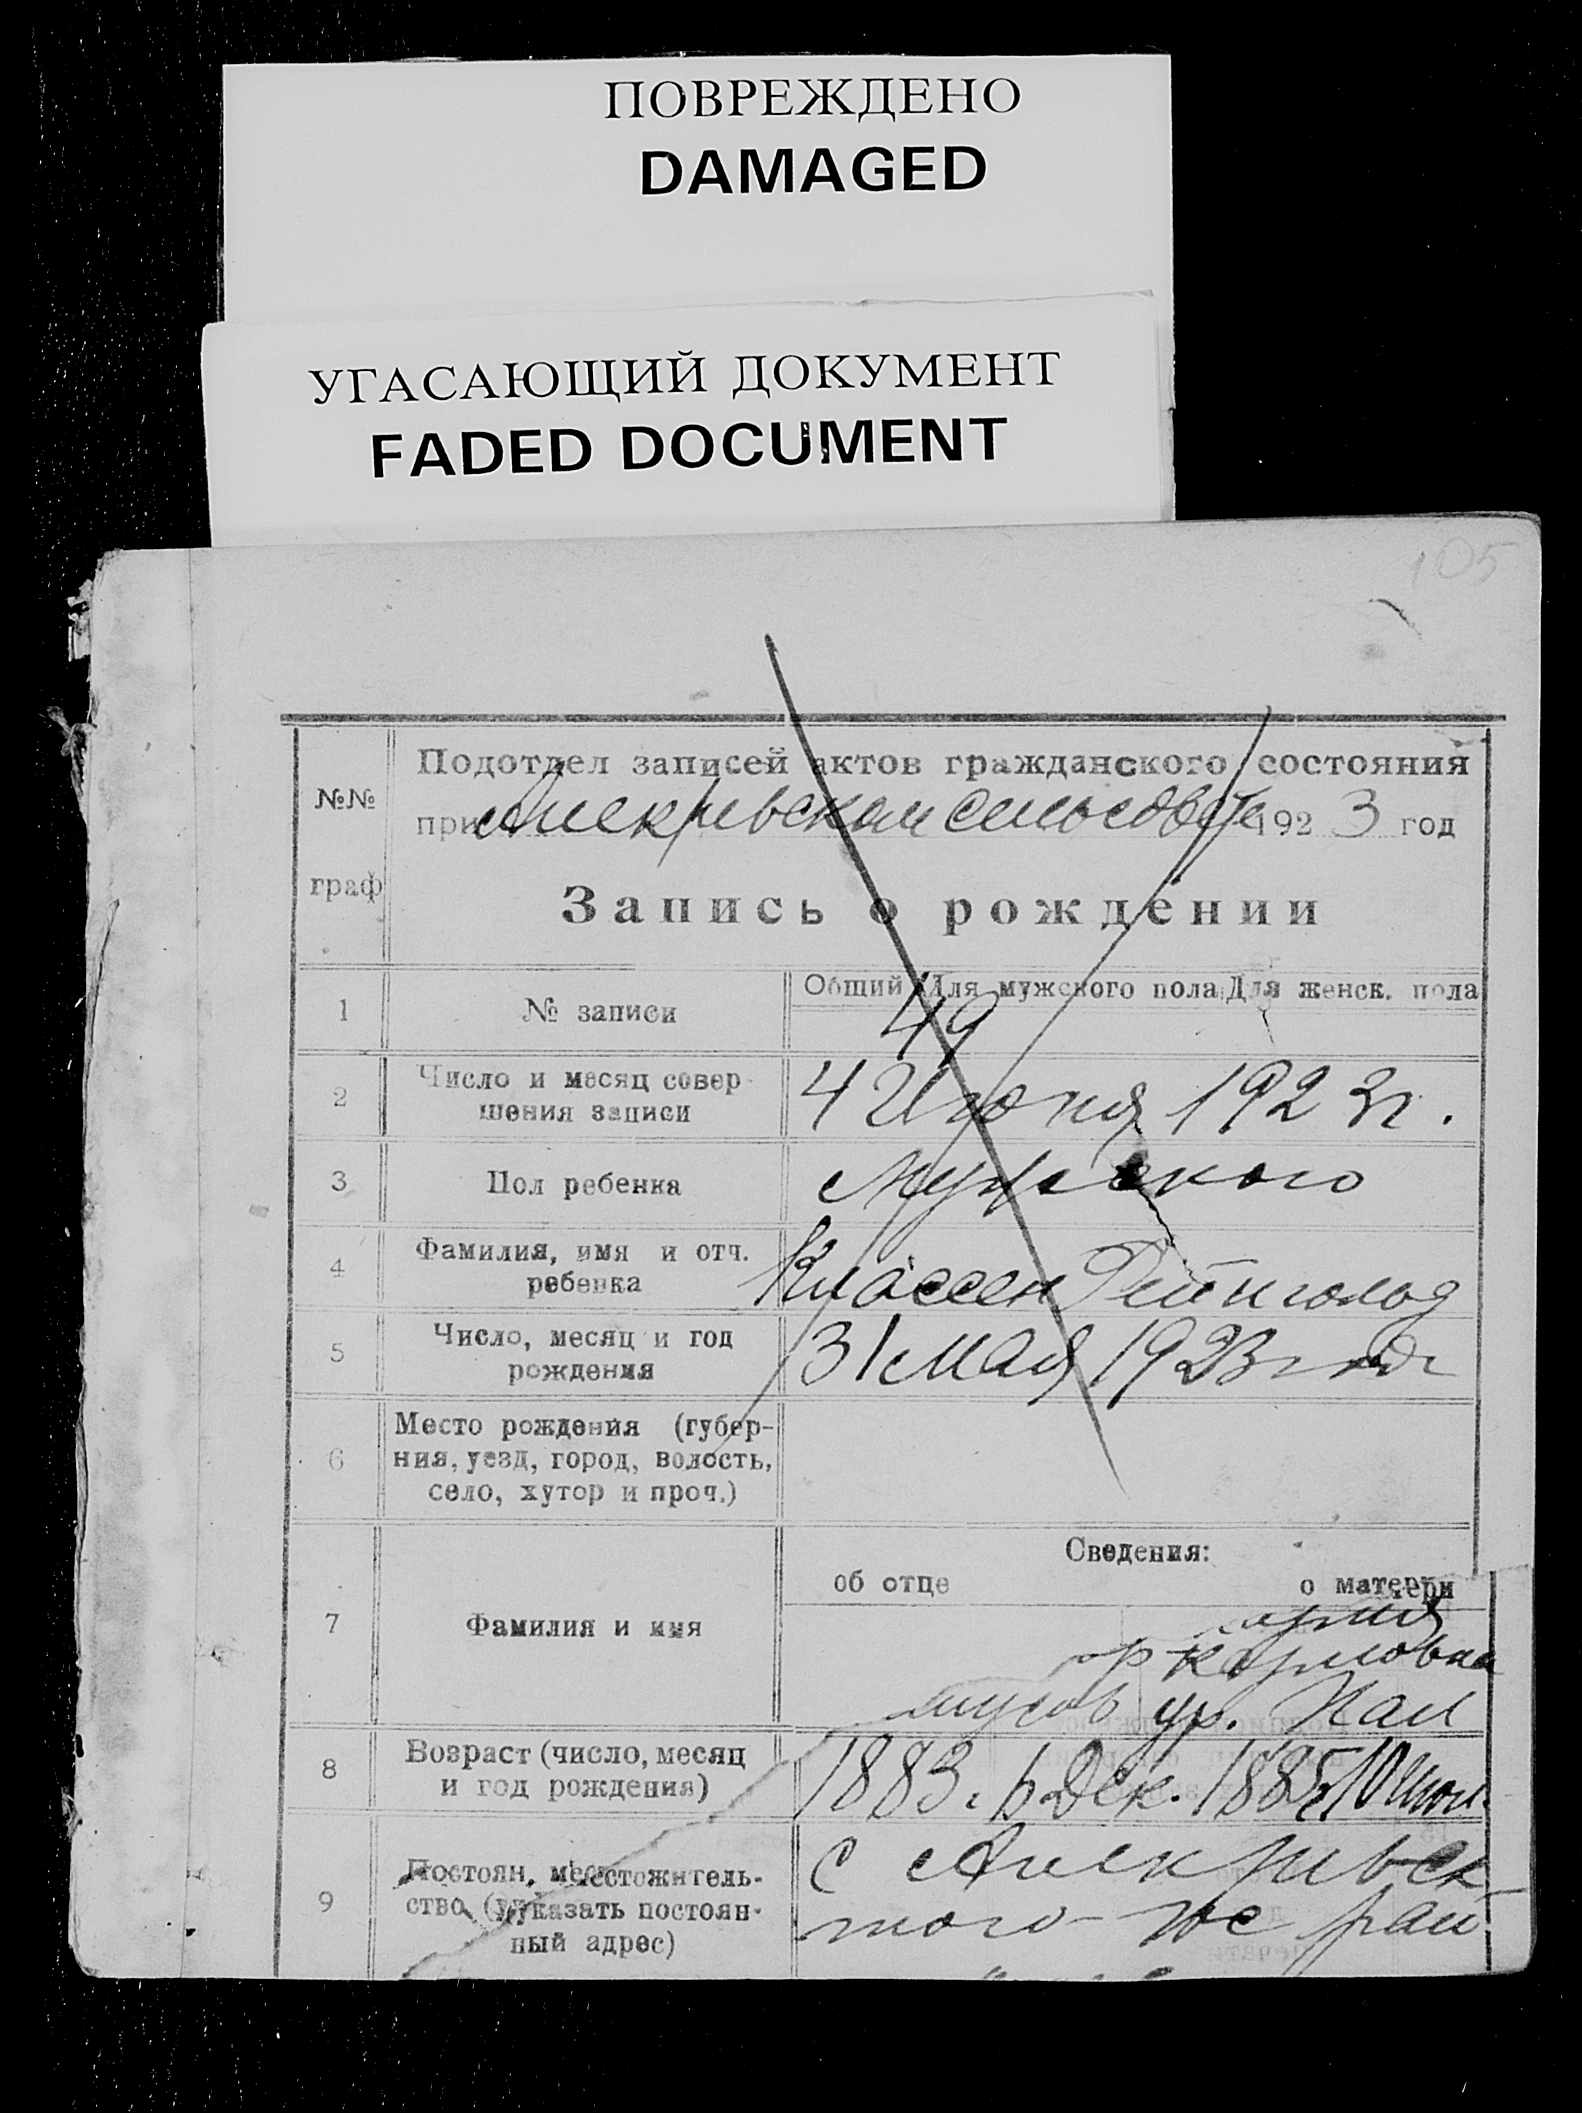 ПОВРЕЖДЕНО
DAMAGED
УГАСАЮЩИЙ ДОКУМЕНТ
FADED DOCUMENT
105
№№ граф
Подотдел записей актов гражданского состояния
при сельсовете 1923 год
Запись о рождении
Общий Для мужского пола Для женск. пола
1 № записи 49
2 Число и месяц совер-
шения записи 4 Июня 1923 г.
3 Пол ребенка Мужского
4 Фамилия, имя и отч.
ребенка Классен Рейнгольд
5 Число, месяц и год
рождения 31 мая 1923 год
6 Место рождения (губер-
ния, уезд, город, волость,
село, хутор и проч.)
Сведения:
об отце о матери
7 Фамилия и имя
Карловна
ур.
8 Возраст (число, месяц
и год рождения) 1883. Дек. 1885
9 Постоян. местожитель-
ство (указать постоян-
ный адрес) с
того же рай